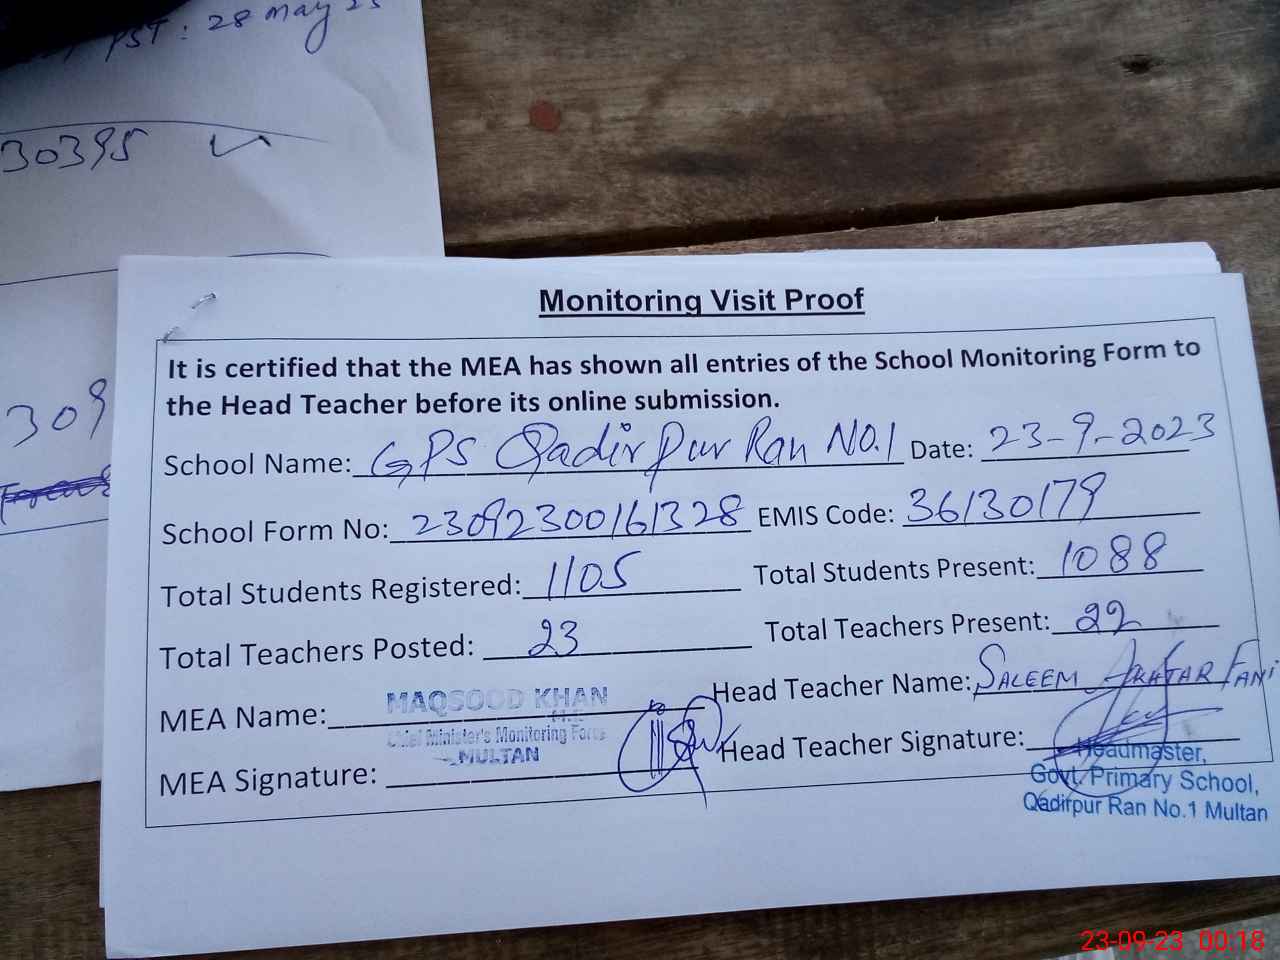 PST: 28 may 23
30395
309
Monitoring Visit Proof
It is certified that the MEA has shown all entries of the School Monitoring Form to
the Head Teacher before its online submission.
School Name: GPS Qadirpur Ran NO.1 Date: 23-9-2023
School Form No: 23092300161328 EMIS Code: 36130179
Total Students Registered: 1105 Total Students Present: 1088
Total Teachers Posted: 23 Total Teachers Present: 22
MEA Name: MAQSOOD KHAN Head Teacher Name: SALEEM AKHTAR FANI
Chief Minister's Monitoring Force
MULTAN
MEA Signature: Head Teacher Signature:
Headmaster,
Govt. Primary School,
Qadirpur Ran No.1 Multan
23-09-23 00:18